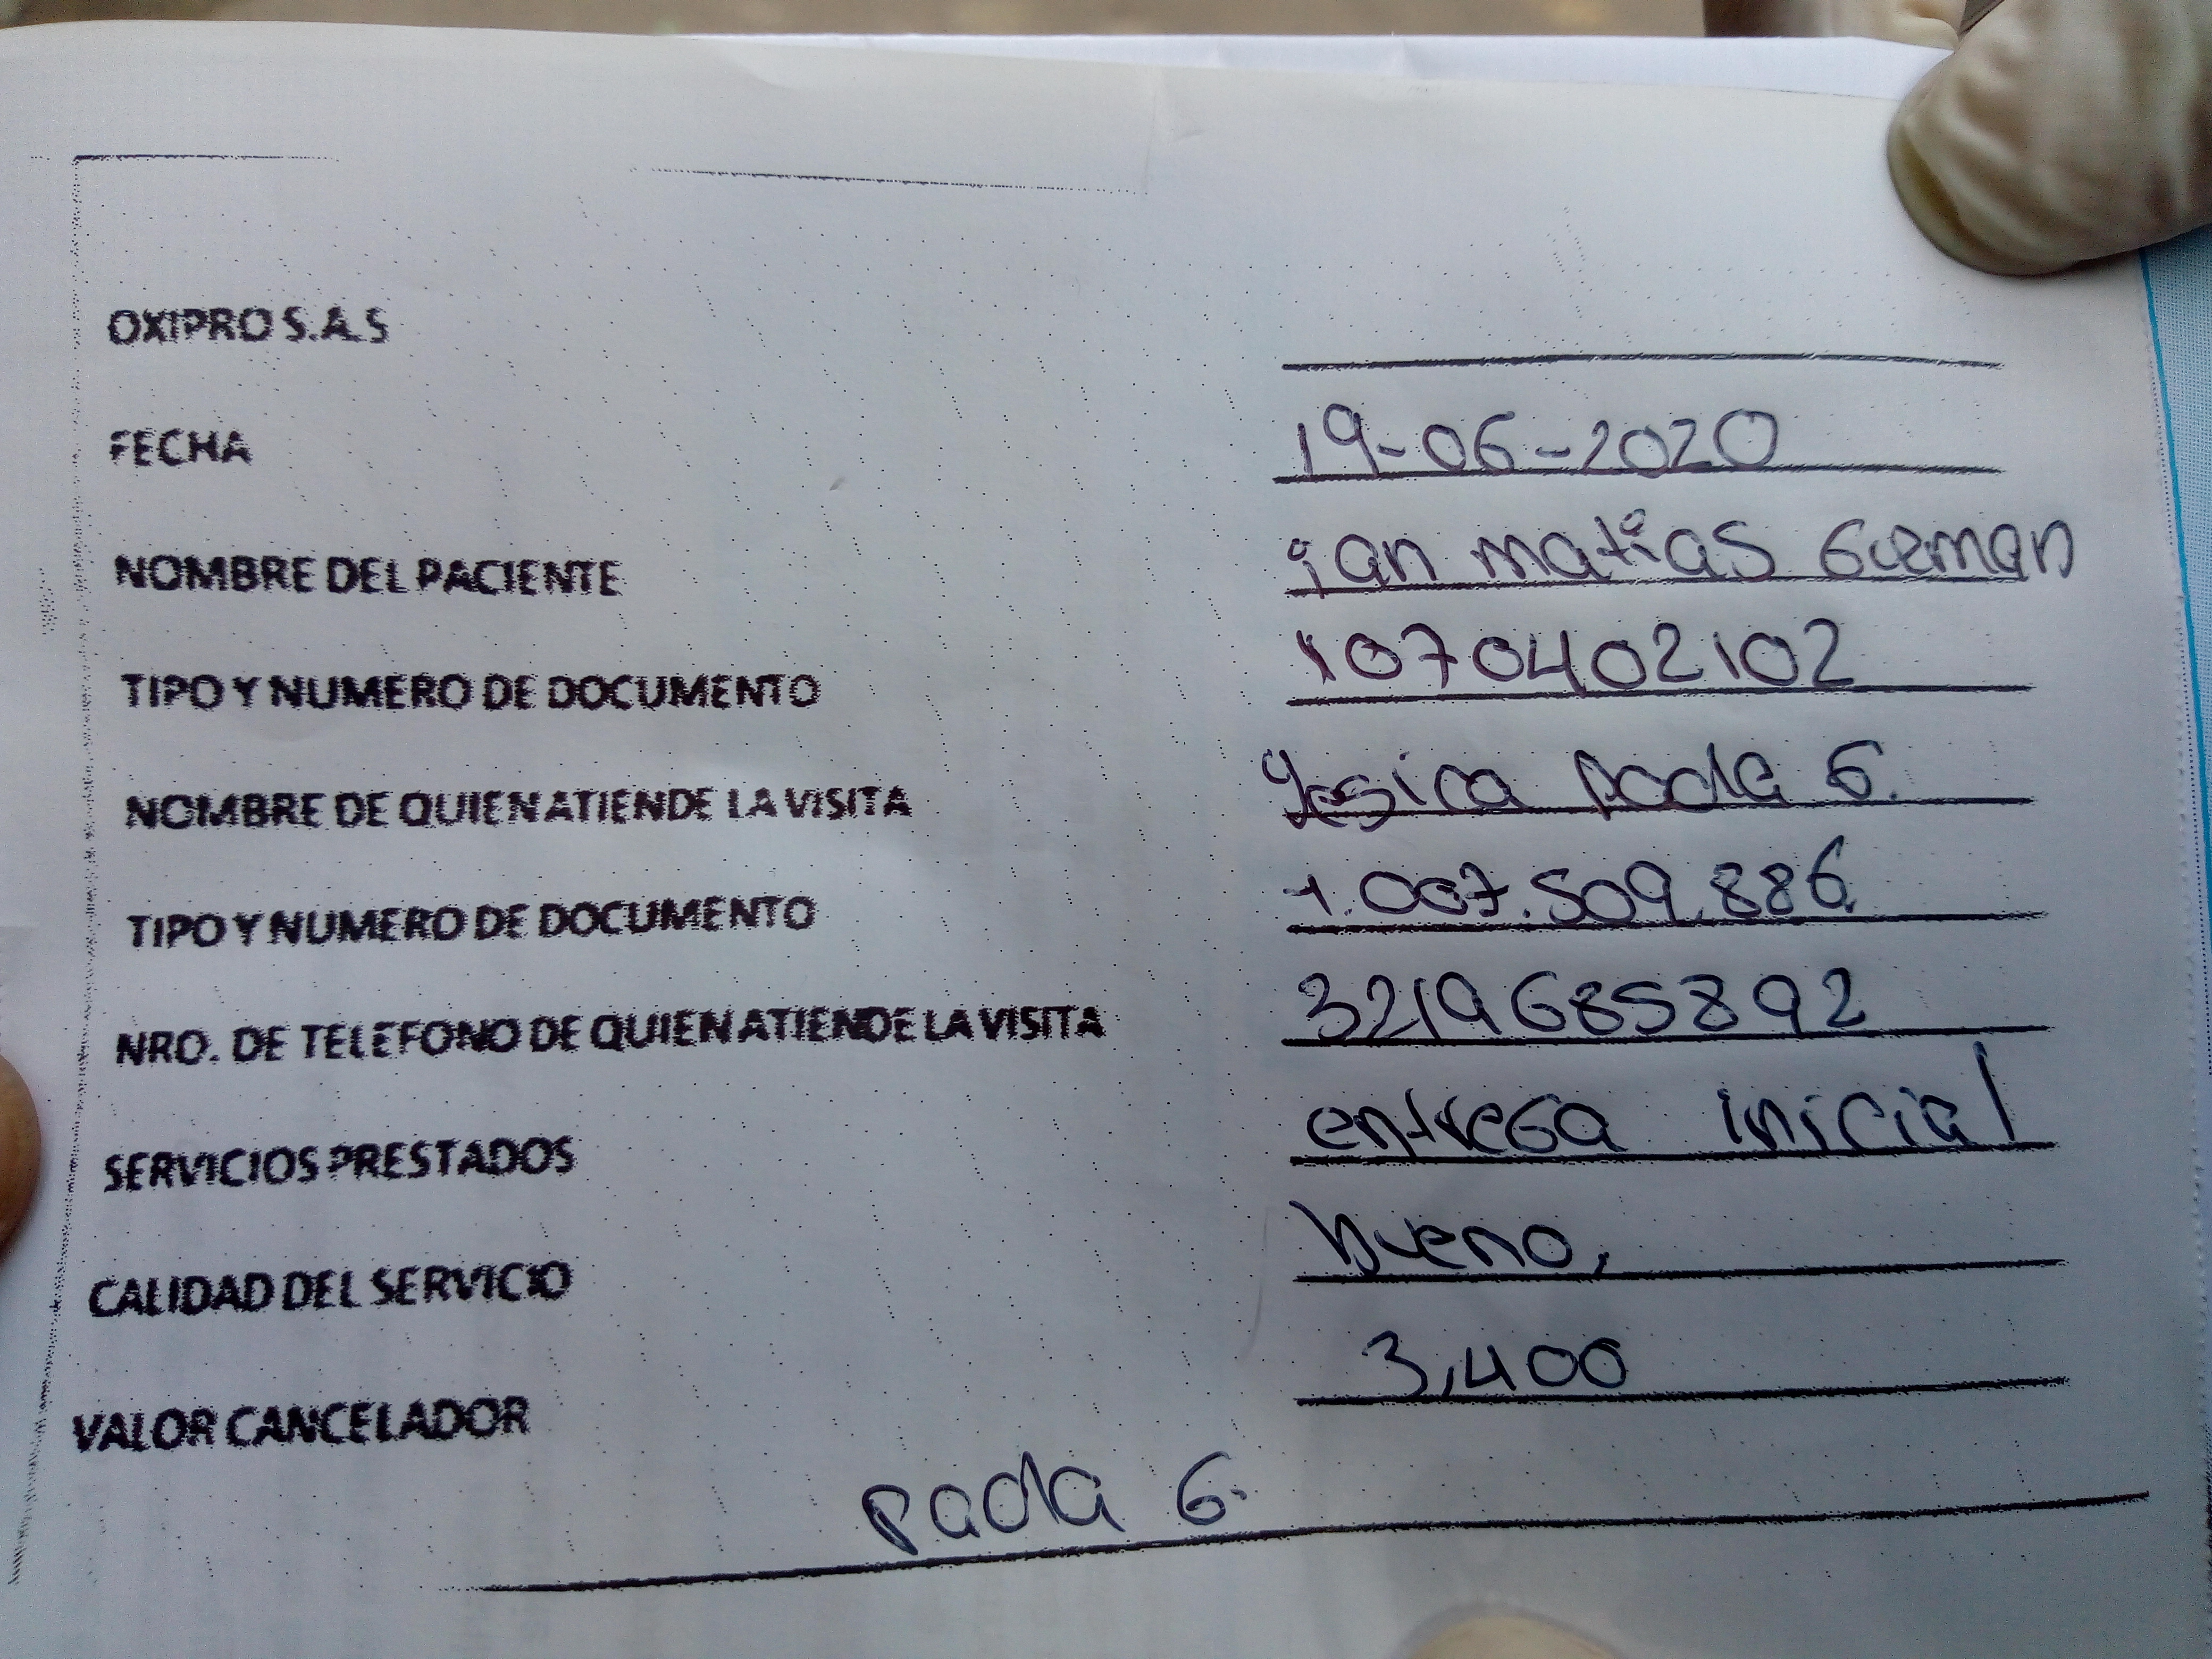 OXIPRO S.A.S
FECHA 19-06-2020
NOMBRE DEL PACIENTE ian matias Guzman
TIPO Y NUMERO DE DOCUMENTO 1070402102
NOMBRE DE QUIEN ATIENDE LA VISITA Yesica paola G.
TIPO Y NUMERO DE DOCUMENTO 1.007.509.886
NRO. DE TELEFONO DE QUIEN ATIENDE LA VISITA 3219685892
SERVICIOS PRESTADOS entrega inicial
CALIDAD DEL SERVICIO bueno.
VALOR CANCELADOR 3,400
paola G.